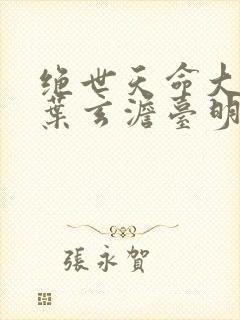 绝世天命大
葉玄澹臺明
張永賀